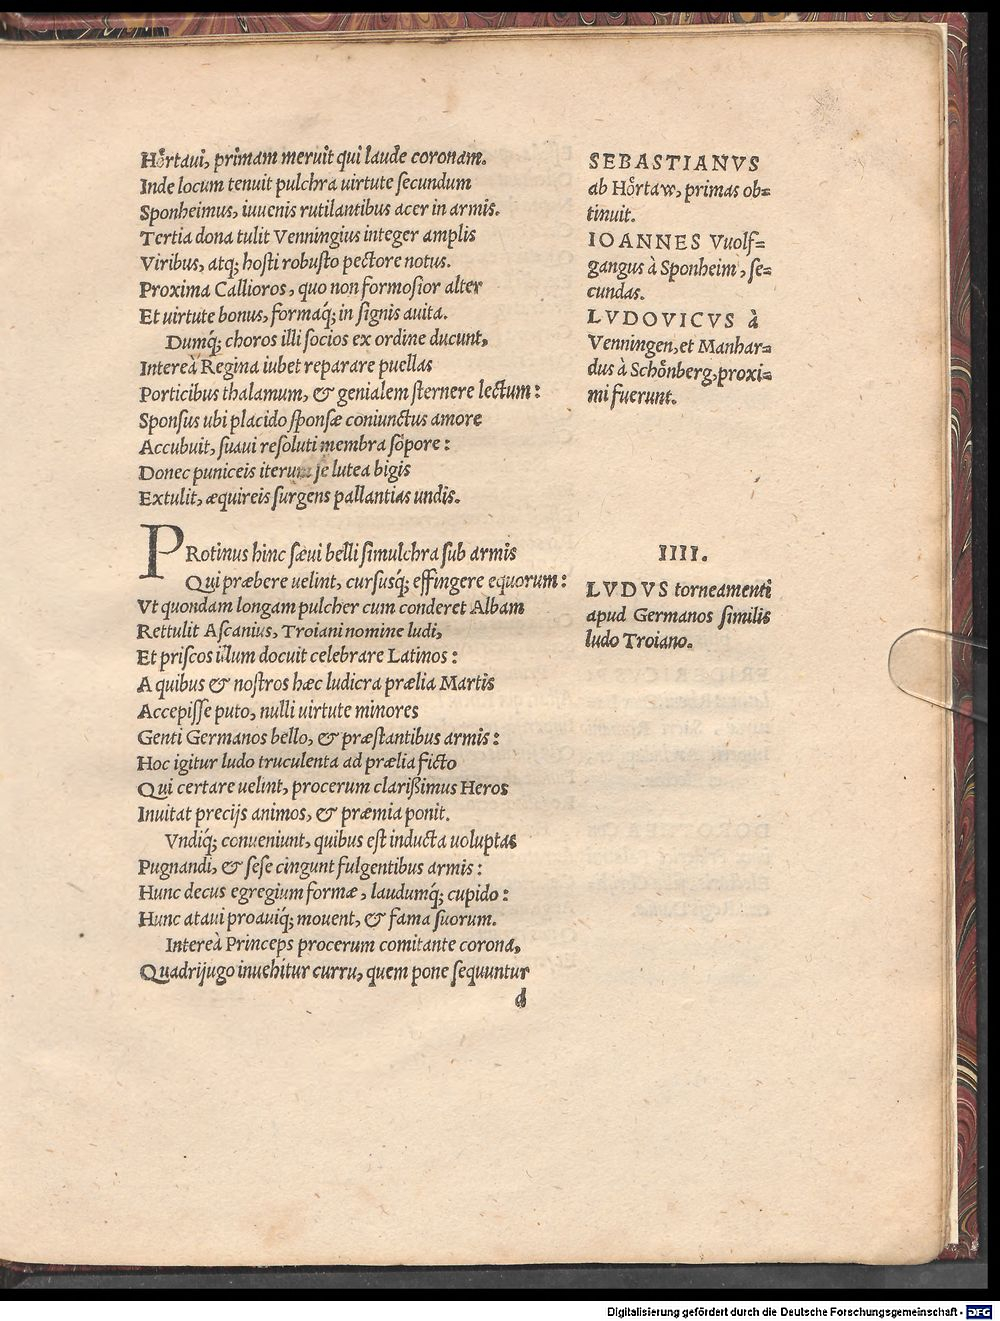 Hoͤrtaui, primam meruit qui laude coronam.
Inde locum tenuit pulchra uirtute ſecundum
Sponheimus, iuuenis rutilantibus acer in armis.
Tertia dona tulit Venningius integer amplis
Viribus, atq; hoſti robuſto pectore notus.
Proxima Callioros, quo non formoſior alter
Et uirtute bonus, formaq́; in ſignis auita.
Dumq́; choros illi ſocios ex ordine ducunt,
Intereà Regina iubet reparare puellas
Porticibus thalamum, & genialem ſternere lectum:
Sponſus ubi placido ſponſæ coniunctus amore
Accubuit, ſuaui reſoluti membra ſopore:
Donec puniceis iterum ſe lutea bigis
Extulit, æquireis ſurgens pallantias undis.
PRotinus hinc ſæui belli ſimulchra ſub armis
Qui præbere uelint, curſusq́; effingere equorum:
Vt quondam longam pulcher cum conderet Albam
Rettulit Aſcanius, Troiani nomine ludi,
Et priſcos illum docuit celebrare Latinos:
A quibus & noſtros hæc ludicra prælia Martis
Accepiſſe puto, nulli uirtute minores
Genti Germanos bello, & præſtantibus armis:
Hoc igitur ludo truculenta ad prælia ficto
Qui certare uelint, procerum clarißimus Heros
Inuitat precijs animos, & præmia ponit.
Vndiq́; conueniunt, quibus eſt inducta uoluptas
Pugnandi, & ſeſe cingunt fulgentibus armis:
Hunc decus egregium formæ, laudumq́; cupido:
Hunc ataui proauiq́; mouent, & fama ſuorum.
Intereà Princeps procerum comitante corona,
Quadrijugo inuehitur curru, quem pone ſequuntur
d
SEBASTIANVS
ab Hoͤrtaw, primas ob=
tinuit.
IOANNES Vuolf=
gangus à Sponheim, ſe=
cundas.
LVDOVICVS à
Venningen, et Manhar=
dus à Schoͤnberg, proxi=
mi fuerunt.
IIII.
LVDVS torneamenti
apud Germanos ſimilis
ludo Troiano.
Digitalisierung gefördert durch die Deutsche Forschungsgemeinschaft - DFG